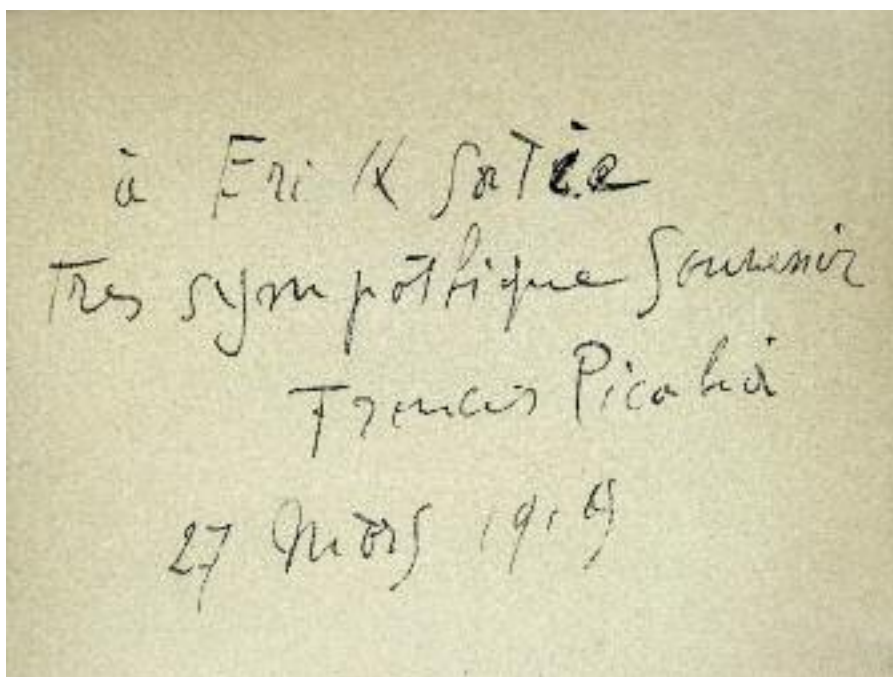 à Erik Satie
Tres sympathique souvenir
Francis Picabia
27 Mars 1919